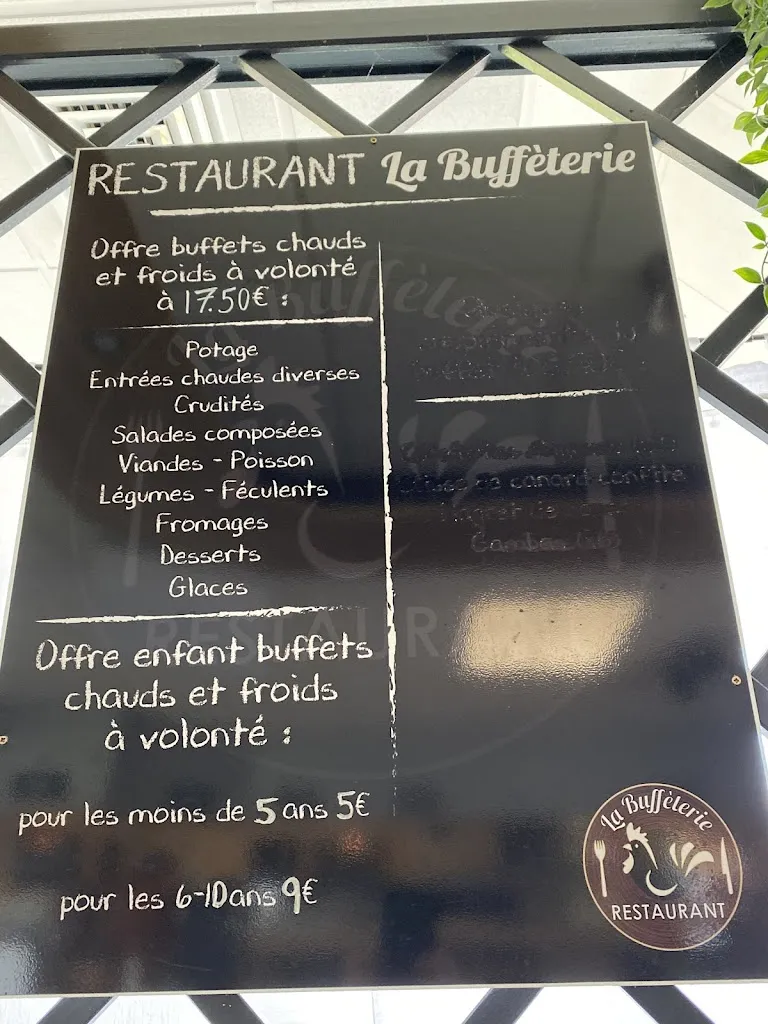 RESTAURANT La Buffèterie
Offre buffets chauds
et froids à volonté
à 17.50€ :
Potage
Entrées chaudes diverses
Crudités
Salades composées
Viandes - Poisson
Légumes - Féculents
Fromages
Desserts
Glaces
Offre enfant buffets
chauds et froids
à volonté :
pour les moins de 5 ans 5€
pour les 6-10 ans 9€
de canard confite
La Buffèterie
RESTAURANT